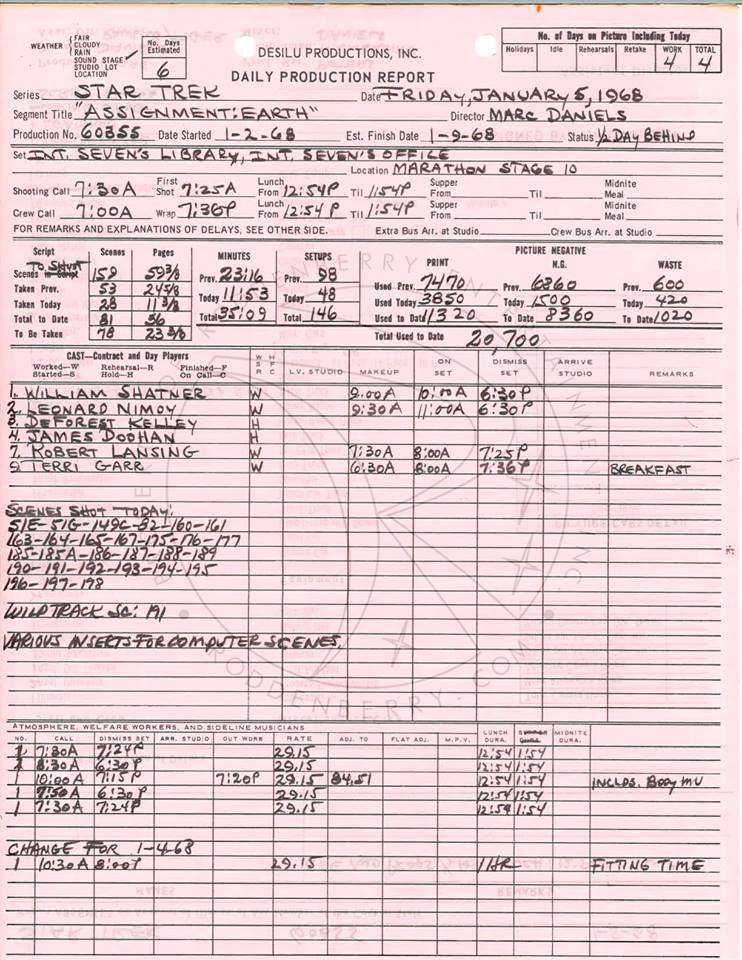 WEATHER FAIR CLOUDY RAIN SOUND STAGE STUDIO LOT LOCATION
No. Days Estimated 6
DESILU PRODUCTIONS, INC.
DAILY PRODUCTION REPORT
No. of Days on Picture Including Today
Holidays Idle Rehearsals Retake WORK TOTAL
4 4
Series STAR TREK Date FRIDAY, JANUARY 5, 1968
Segment Title "ASSIGNMENT: EARTH" Director MARC DANIELS
Production No. 60355 Date Started 1-2-68 Est. Finish Date 1-9-68 Status 1/2 DAY BEHIND
Set INT. SEVEN'S LIBRARY, INT. SEVEN'S OFFICE
Location MARATHON STAGE 10
Shooting Call 7:30A First Shot 7:25A Lunch From 12:54P Til 1:54P Supper From Til Midnite Meal
Crew Call 7:00A Wrap 7:36P Lunch From 12:54P Til 1:54P Supper From Til Midnite Meal
FOR REMARKS AND EXPLANATIONS OF DELAYS, SEE OTHER SIDE. Extra Bus Arr. at Studio Crew Bus Arr. at Studio
Script Scenes Pages MINUTES SETUPS PICTURE NEGATIVE
PRINT N.G. WASTE
Scenes TO SHOOT 159 59 3/8 Prev. 23:16 Prev. 98 Used Prev. 7470 Prev. 6860 Prev. 600
Taken Prev. 53 24 5/8 Today 11:53 Today 48 Used Today 3850 Today 1500 Today 420
Taken Today 28 11 3/8 Total 35:09 Total 146 Used to Date 11320 To Date 8360 To Date 1020
Total to Date 81 36
To Be Taken 78 23 3/8 Total Used to Date 20,700
CAST—Contract and Day Players
Worked—W Rehearsal—R Finished—F
Started—S Hold—H On Call—C
W H S F R C LV. STUDIO MAKEUP ON SET DISMISS SET ARRIVE STUDIO REMARKS
1. WILLIAM SHATNER W 9:00A 10:00A 6:30P
2. LEONARD NIMOY W 9:30A 11:00A 6:30P
3. DEFOREST KELLEY H
4. JAMES DOOHAN H
7. ROBERT LANSING W 7:30A 8:00A 7:25P
9. TERRI GARR W 6:30A 8:00A 7:36P BREAKFAST
SCENES SHOT TODAY:
51E-51G-149C-32-160-161
163-164-165-167-175-176-177
185-185A-186-187-188-189
190-191-192-193-194-195
196-197-198
WILDTRACK SC: 191
VARIOUS INSERTS FOR COMPUTER SCENES.
RODDENBERRY ENTERTAINMENT INC.
RODDENBERRY.COM
ATMOSPHERE, WELFARE WORKERS, AND SIDELINE MUSICIANS
NO. CALL DISMISS SET ARR. STUDIO OUT WDRB RATE ADJ. TO FLAT ADJ. M.P.V. LUNCH DURA. MIDNITE DURA.
7:30A 7:24P 29.15 12:54 1:54
8:30A 6:30P 29.15 12:54 1:54
1 10:00A 7:15P 7:20P 29.15 12:54 1:54 INCLDS. BODY MU
1 7:30A 6:30P 29.15 12:54 1:54
1 7:30A 7:24P 29.15 12:54 1:54
CHANGE FOR 1-4-68
1 10:30A 8:00P 29.15 1 HR FITTING TIME